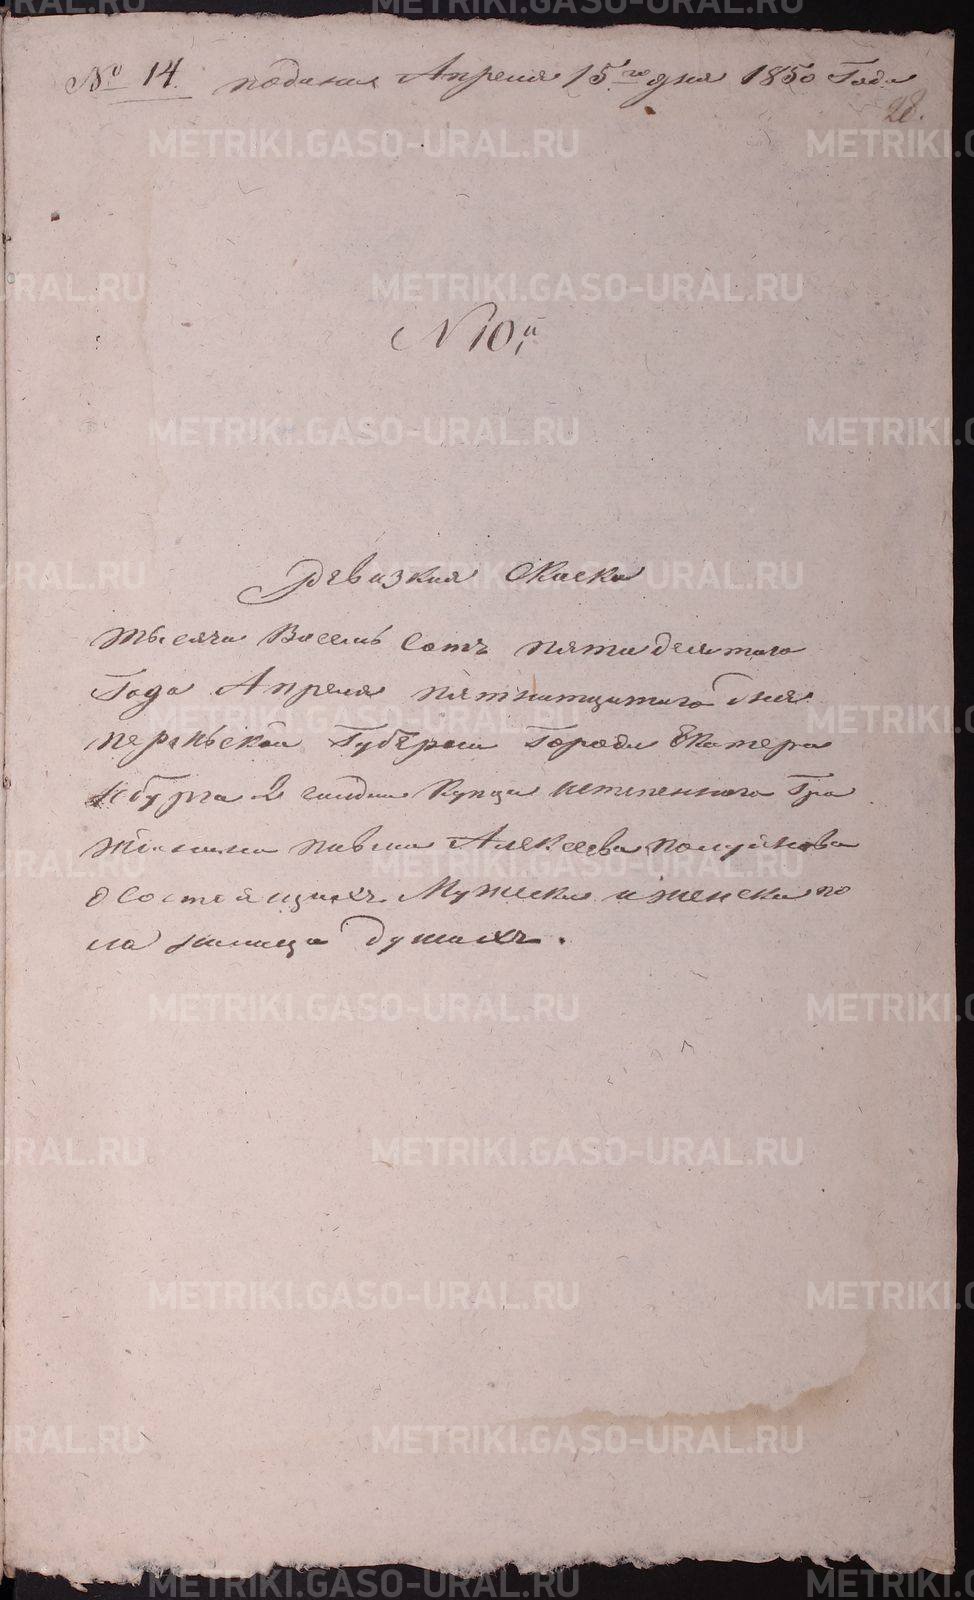 № 14. подана Апреля 15го дня 1850 Года
28.
N 10й
Ревизкая Скаска
тысяча Восемь Сотъ пятидесятаго
Года Апреля пятнатцатаго дня
пермьской Губернiи Города Екатерин
бурга 2 гилдiи Купца имянного Гра
жданина павла Алексеева
о состоящихъ Мужеска и женска по
ла душахъ.
METRIKI.GASO-URAL.RU